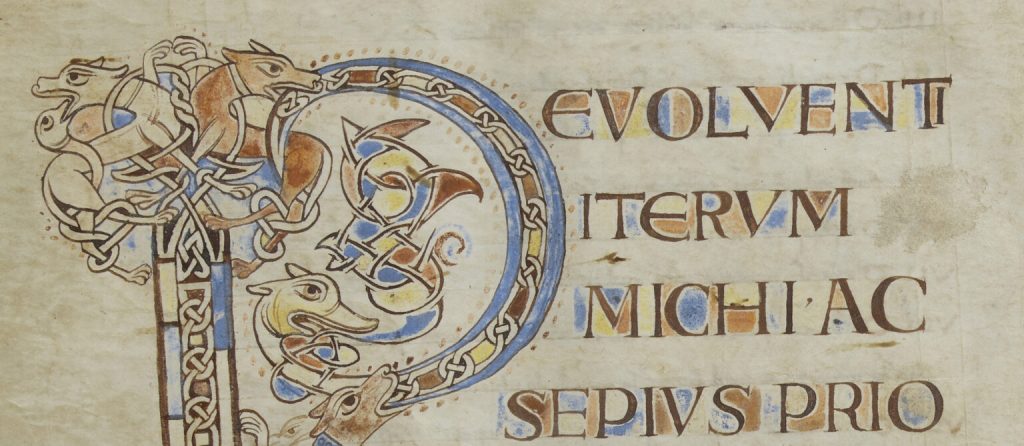 REVOLVENTI
ITERVM
MICHI' AC
SEPIVS PRIO